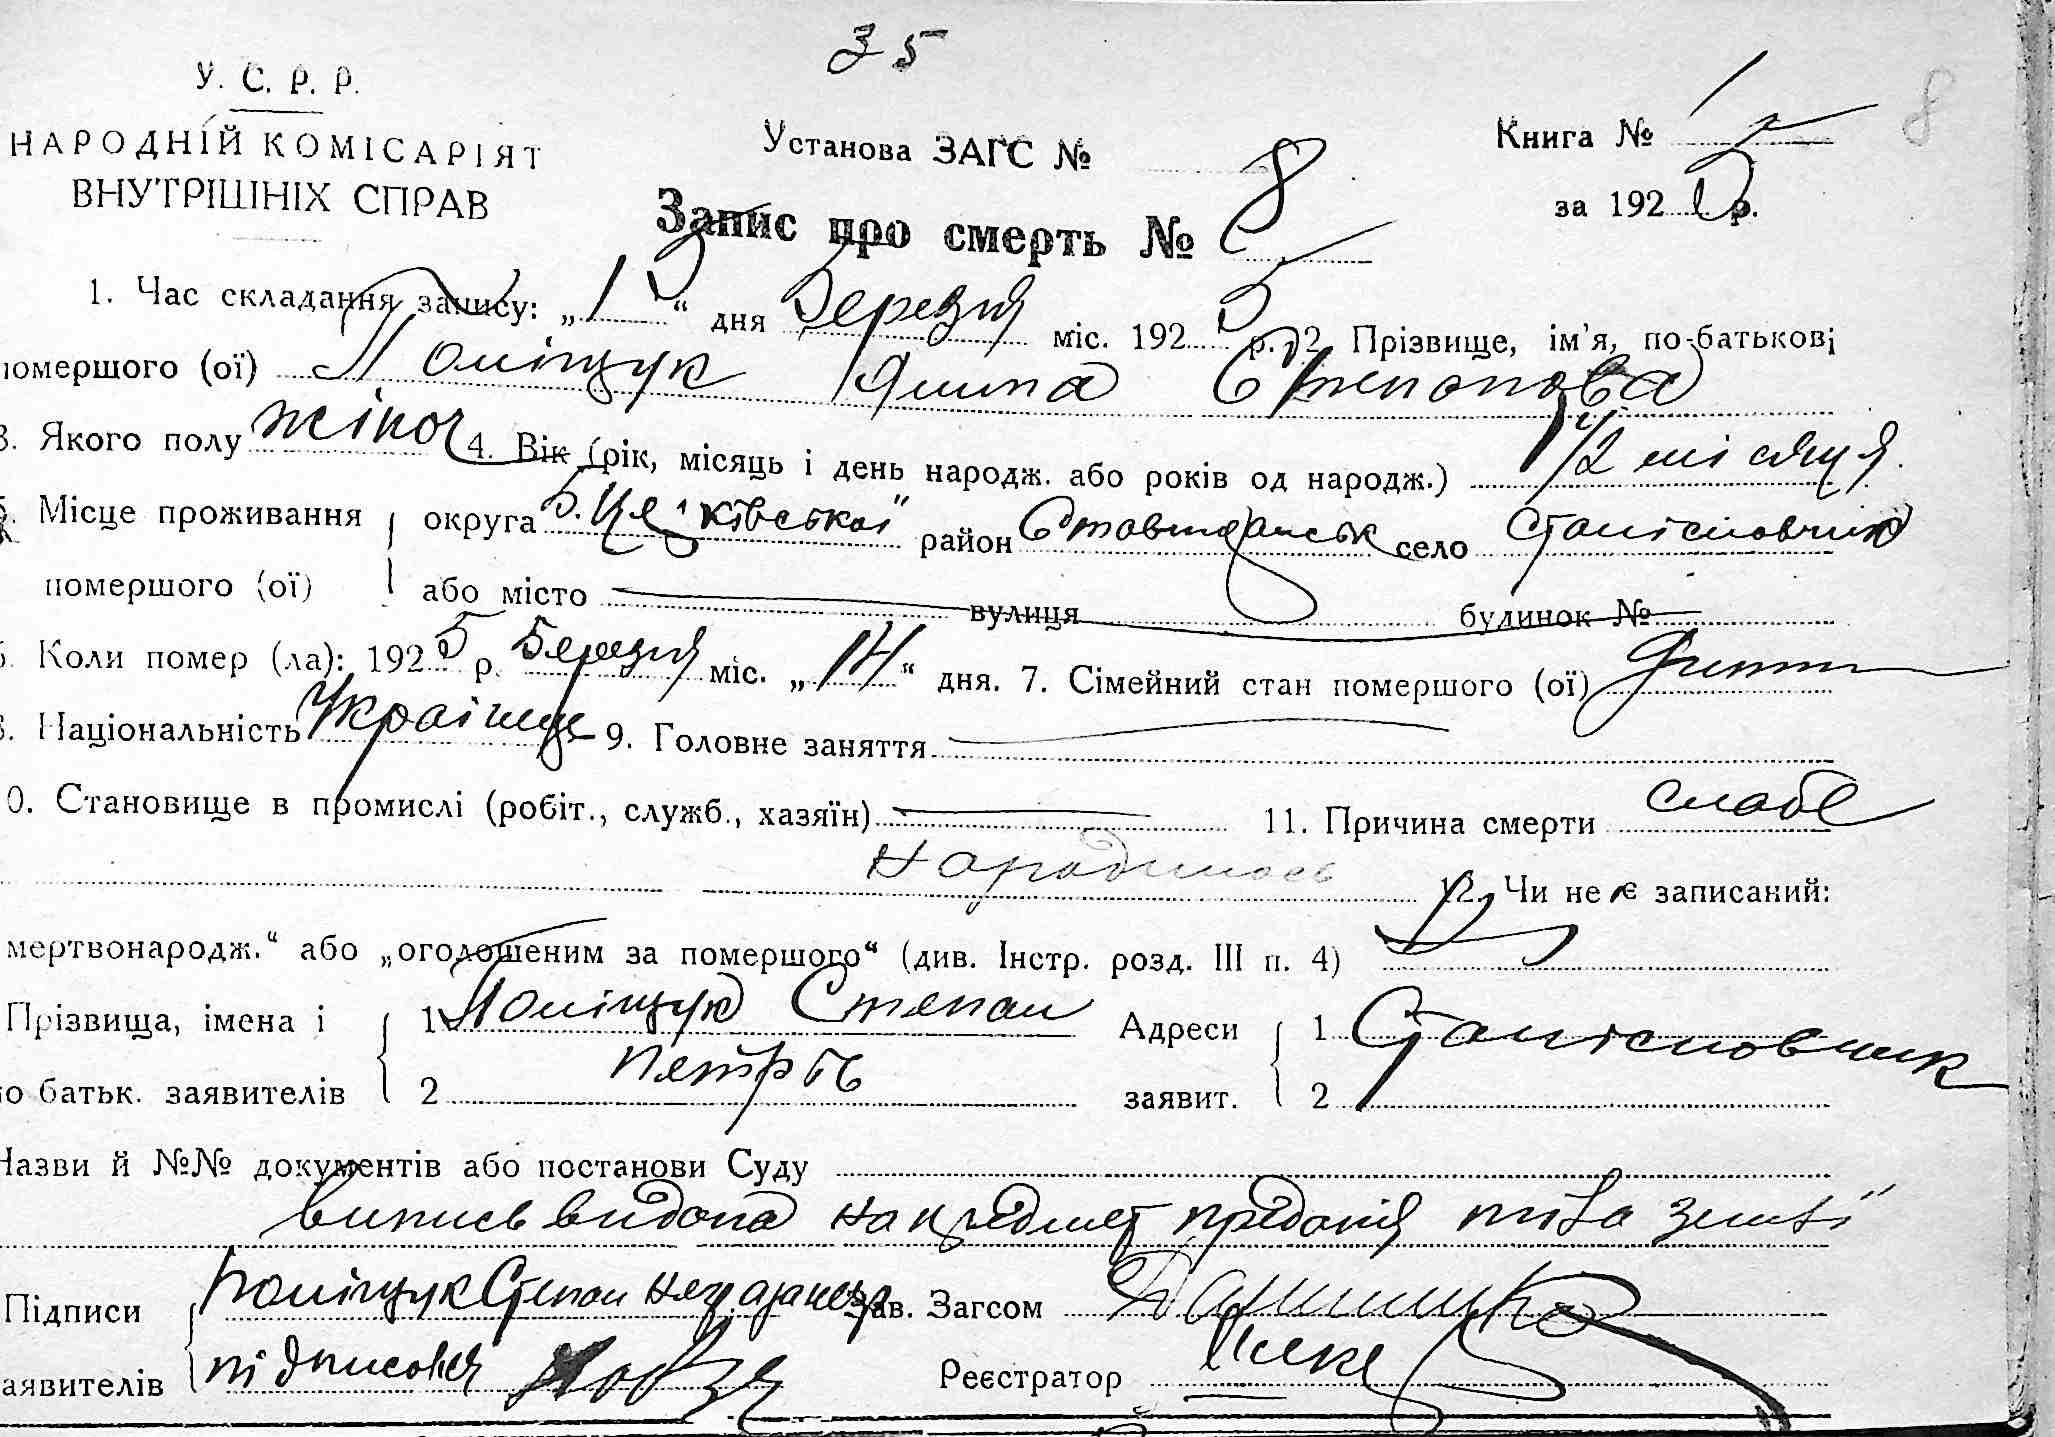 35
У. С. Р. Р.
НАРОДНІЙ КОМІСАРІЯТ
ВНУТРІШНІХ СПРАВ
Установа ЗАГС №
Книга № 1
8
за 1925 р.
Запис про смерть № 8
1. Час складання запису: „15“ дня Березня міс. 1925 р. 2. Прізвище, ім'я, по-батькові
помершого (ої) Поліщук Степанова
3. Якого полу жіноч 4. Вік (рік, місяць і день народж. або років од народж.) 1/2 місяця.
5. Місце проживання округа Б. Церківської район село Станіславчик
помершого (ої) або місто вулиця будинок №
6. Коли помер (ла): 1925 р. Березня міс. „14“ дня. 7. Сімейний стан помершого (ої)
8. Національність Українце 9. Головне заняття
10. Становище в промислі (робіт., служб., хазяїн) 11. Причина смерти слабе
народилось 12. Чи не є записаний:
мертвонародж.“ або „оголошеним за помершого“ (див. Інстр. розд. III п. 4)
Прізвища, імена і 1 Поліщук Степан Адреси 1 Станіславчик
по батьк. заявителів 2 Петрів заявит. 2
Назви й №№ документів або постанови Суду
випись видана на предмет предания тіла землі
Підписи Поліщук Степан Зав. Загсом
заявителів підписався Реєстратор